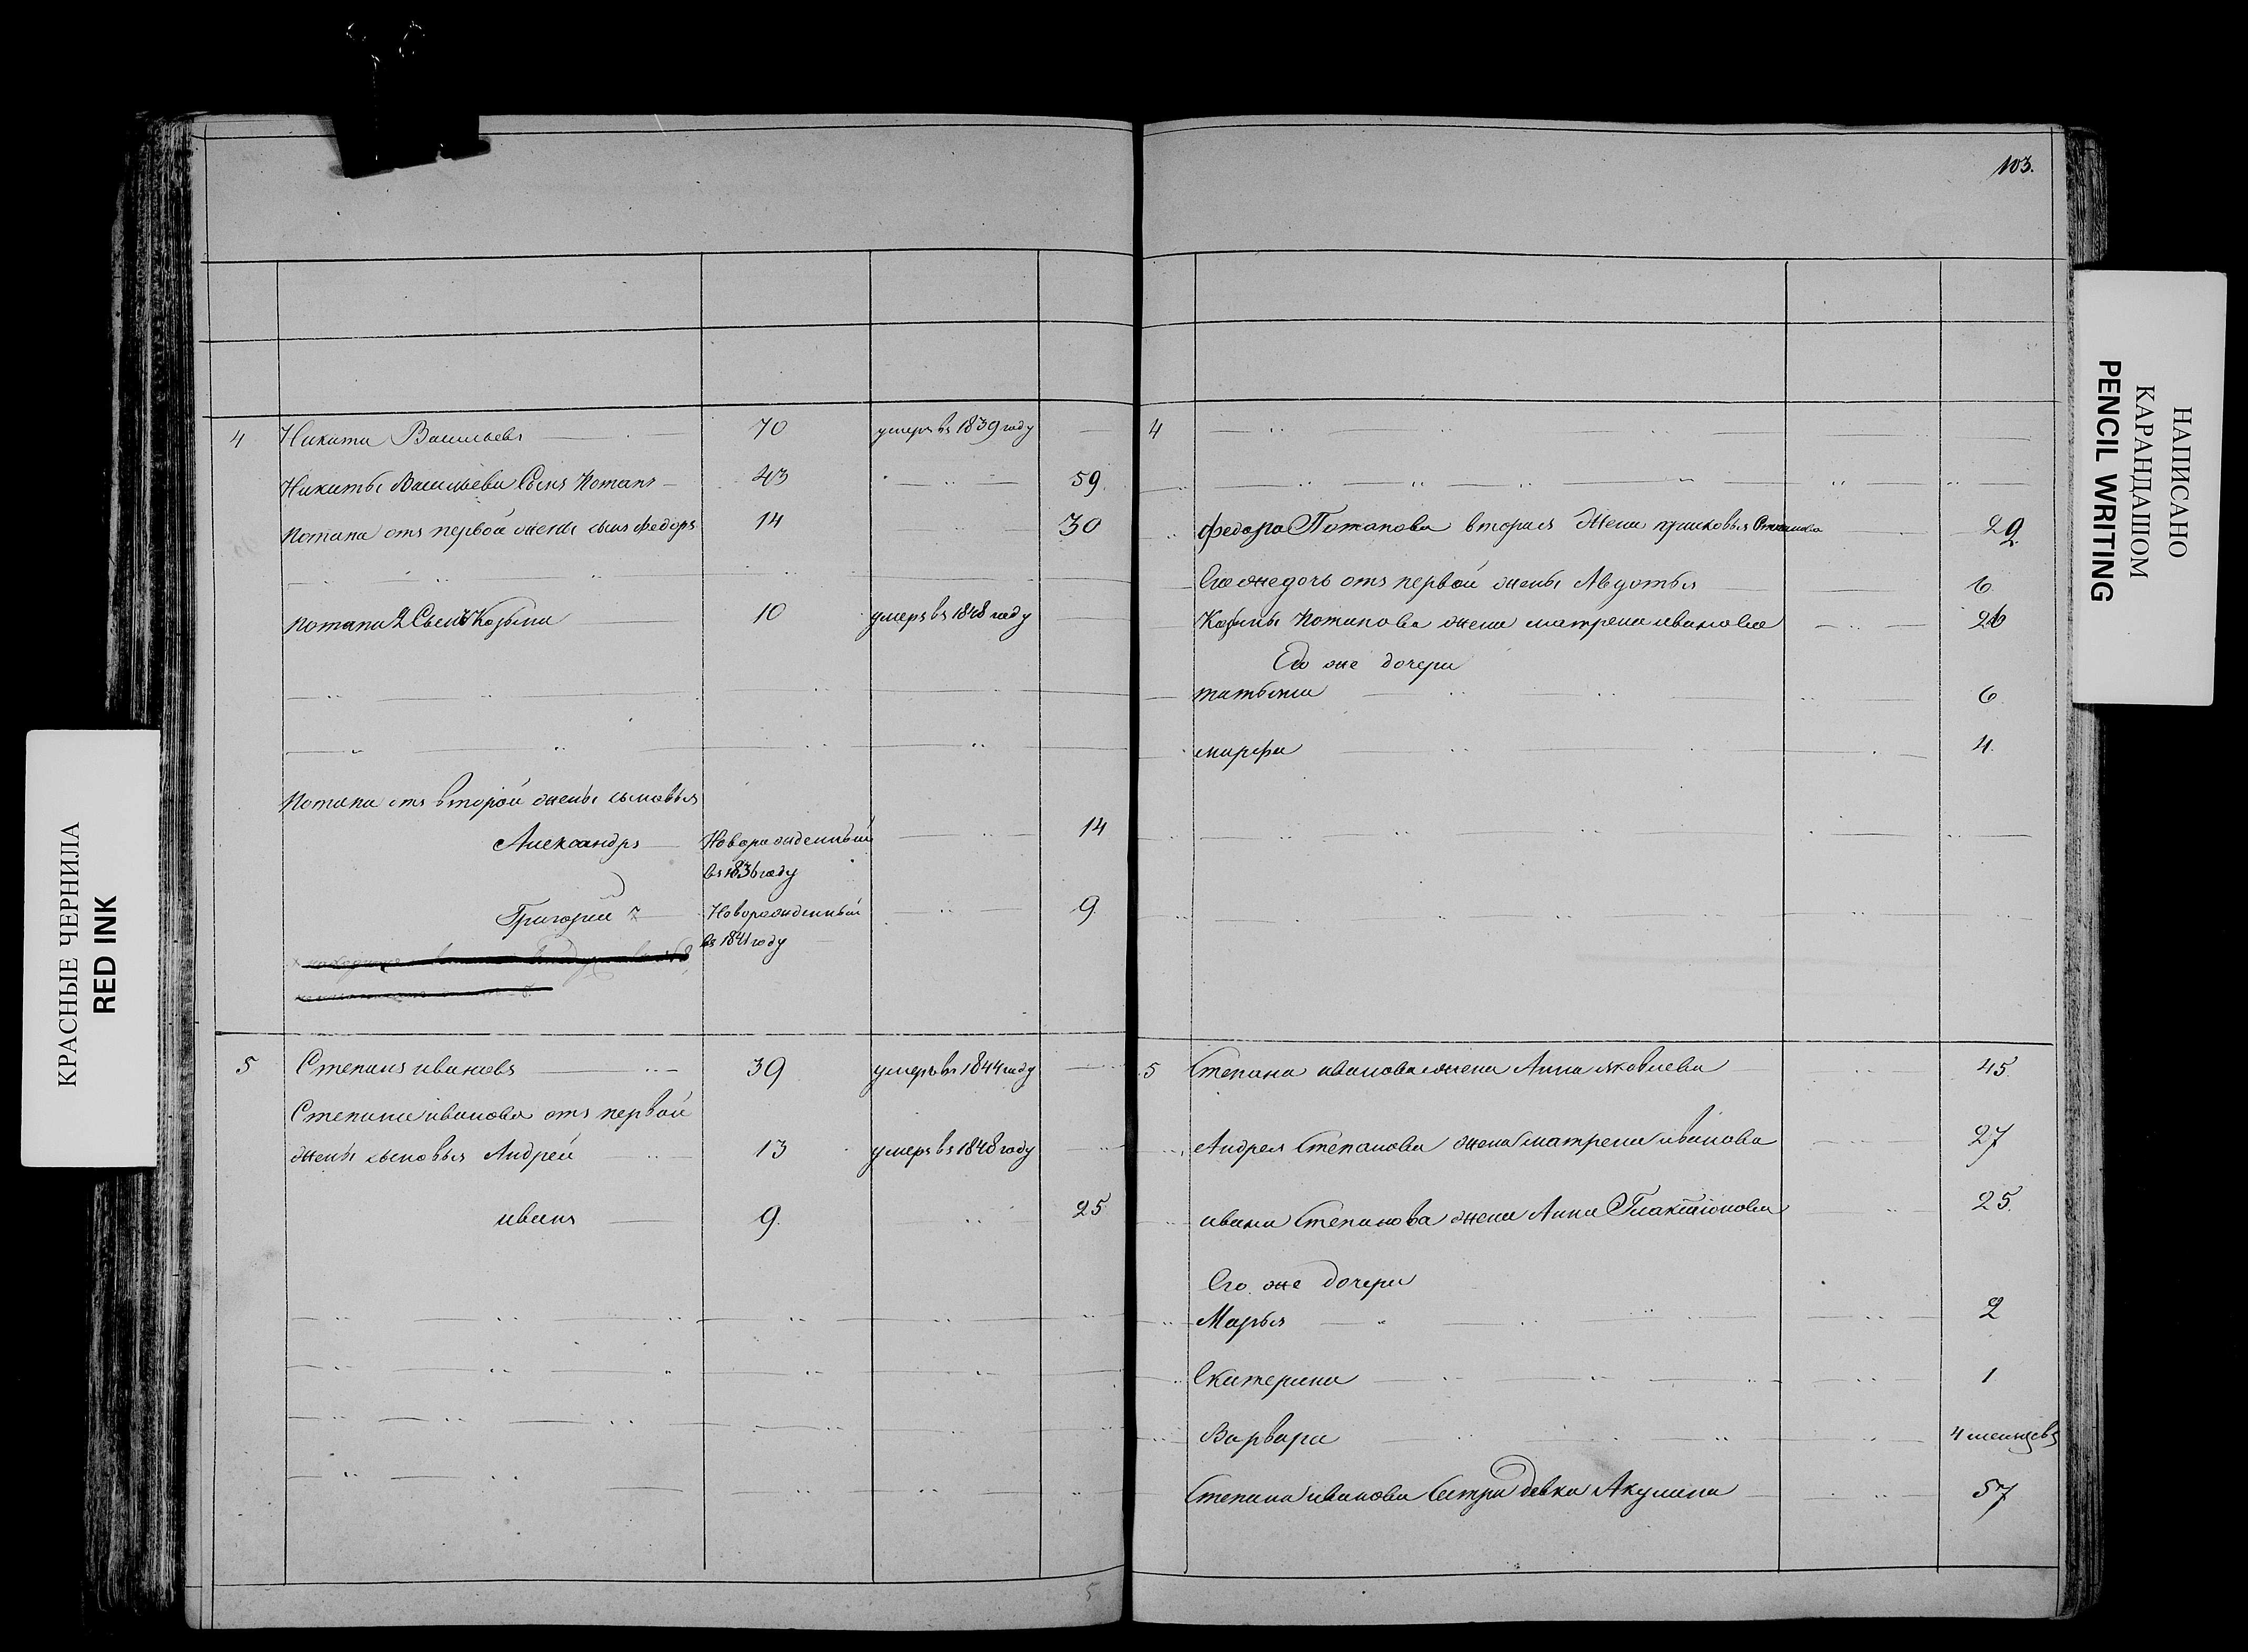 103.
4 Никита Васильевъ 70 умеръ въ 1839 году
Никиты Васильева Сынъ Потапъ 43 59
Потапа отъ первой жены сынъ федоръ 14 30
Потапа 2 Сынъ Козьма 10 умеръ въ 1848 году
Потапа отъ второй жены сыновья
Александръ Новорожденный 14
въ 1836 году
Григорий Новорожденный 9
въ 1841 году
5 Степанъ ивановъ 39 умеръ въ 1844 году
Степана иванова отъ первой
жены сыновья Андрей 13 умеръ въ 1848 году
иванъ 9. 25
5
4
федора Потапова вторая жена 29
Его же дочь отъ первой жены Авдотья 6
Козьмы Потапова жена матрена иванова 26
Его же дочери
татьяна 6
марфа 4.
5 Степана иванова жена Анна яковлева 45
Андрея Степанова жена матрена иванова 27
ивана Степанова жена Анна Галактионова 25.
Его же дочери
Марья 2
Екатерина 1
Варвара 4 месяцевъ
Степана иванова Сестра девка Акулина 57
КРАСНЫЕ ЧЕРНИЛА
RED INK
НАПИСАНО
КАРАНДАШОМ
PENCIL WRITING